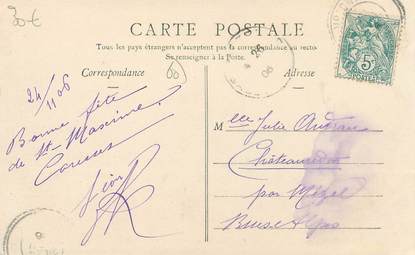 30€
CARTE POSTALE
Tous les pays étrangers n'acceptent pas la correspondance au recto
Se renseigner à la Poste.
Correspondance
Adresse
5c
POSTES
26
06
24/11 06
Bonne fête
de St Maxime.
Caresses
Melle Julie
par Mézel
Basses Alpes